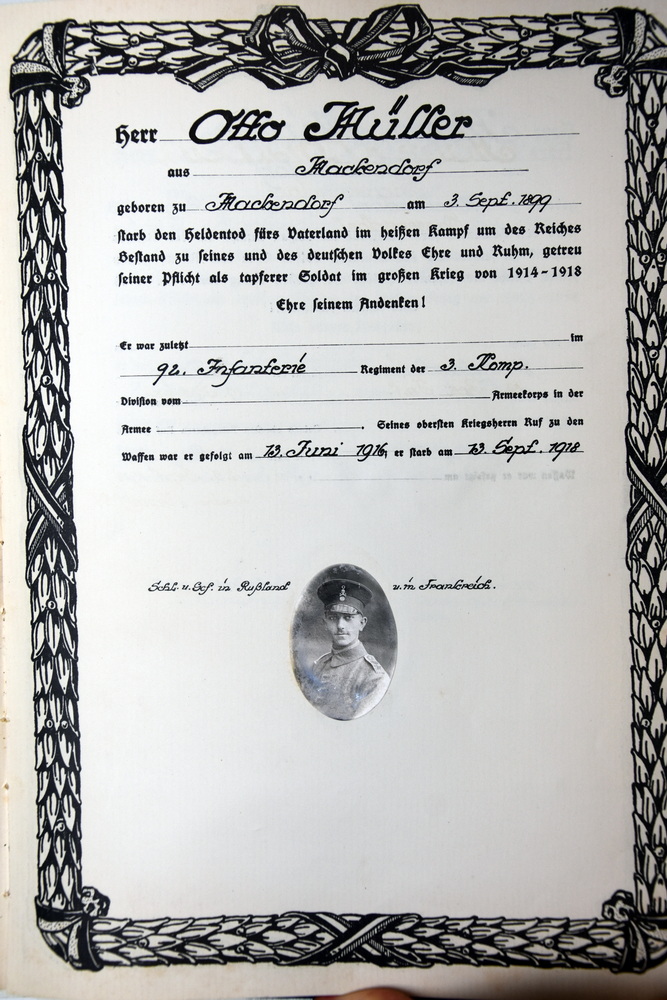 Herr Otto Müller
aus Mackendorf
geboren zu Mackendorf am 3. Sept. 1899
starb den Heldentod fürs Vaterland im heißen Kampf um des Reiches
Bestand zu seines und des deutschen Volkes Ehre und Ruhm, getreu
seiner Pflicht als tapferer Soldat im großen Krieg von 1914-1918
Ehre seinem Andenken!
Er war zuletzt im
92. Infanterie Regiment der 3. Komp.
Division vom Armeekorps in der
Armee . Seines obersten Kriegsherrn Ruf zu den
Waffen war er gefolgt am 13. Juni 1916, er starb am 13. Sept. 1918
Schl. u. Gef. in Rußland u. in Frankreich.